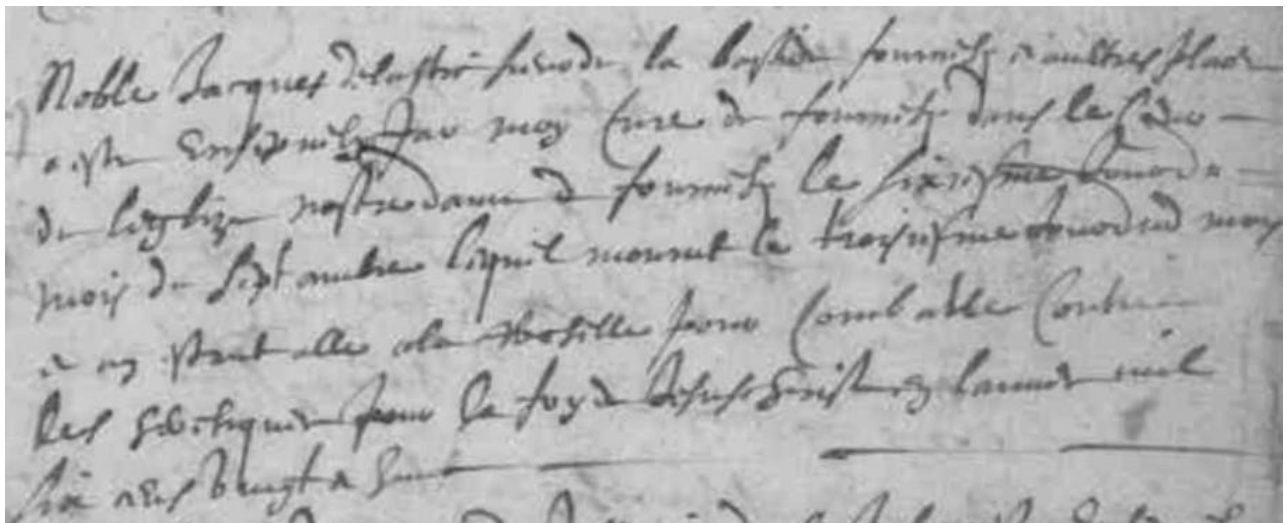 Noble Jacques delastic sieur de la bastide fournels & aultres places
a este ensepvely par moy Curé de fournels dans le
de leglize nostre dame de fournels le sixiesme Jour de
mois de Septambre lequel mourut le troisiesme Jour dud mois
& an estant alle a la pour Combattre Contre
les pour la foy de Jesus christ en lannee mil
six cens vingt &